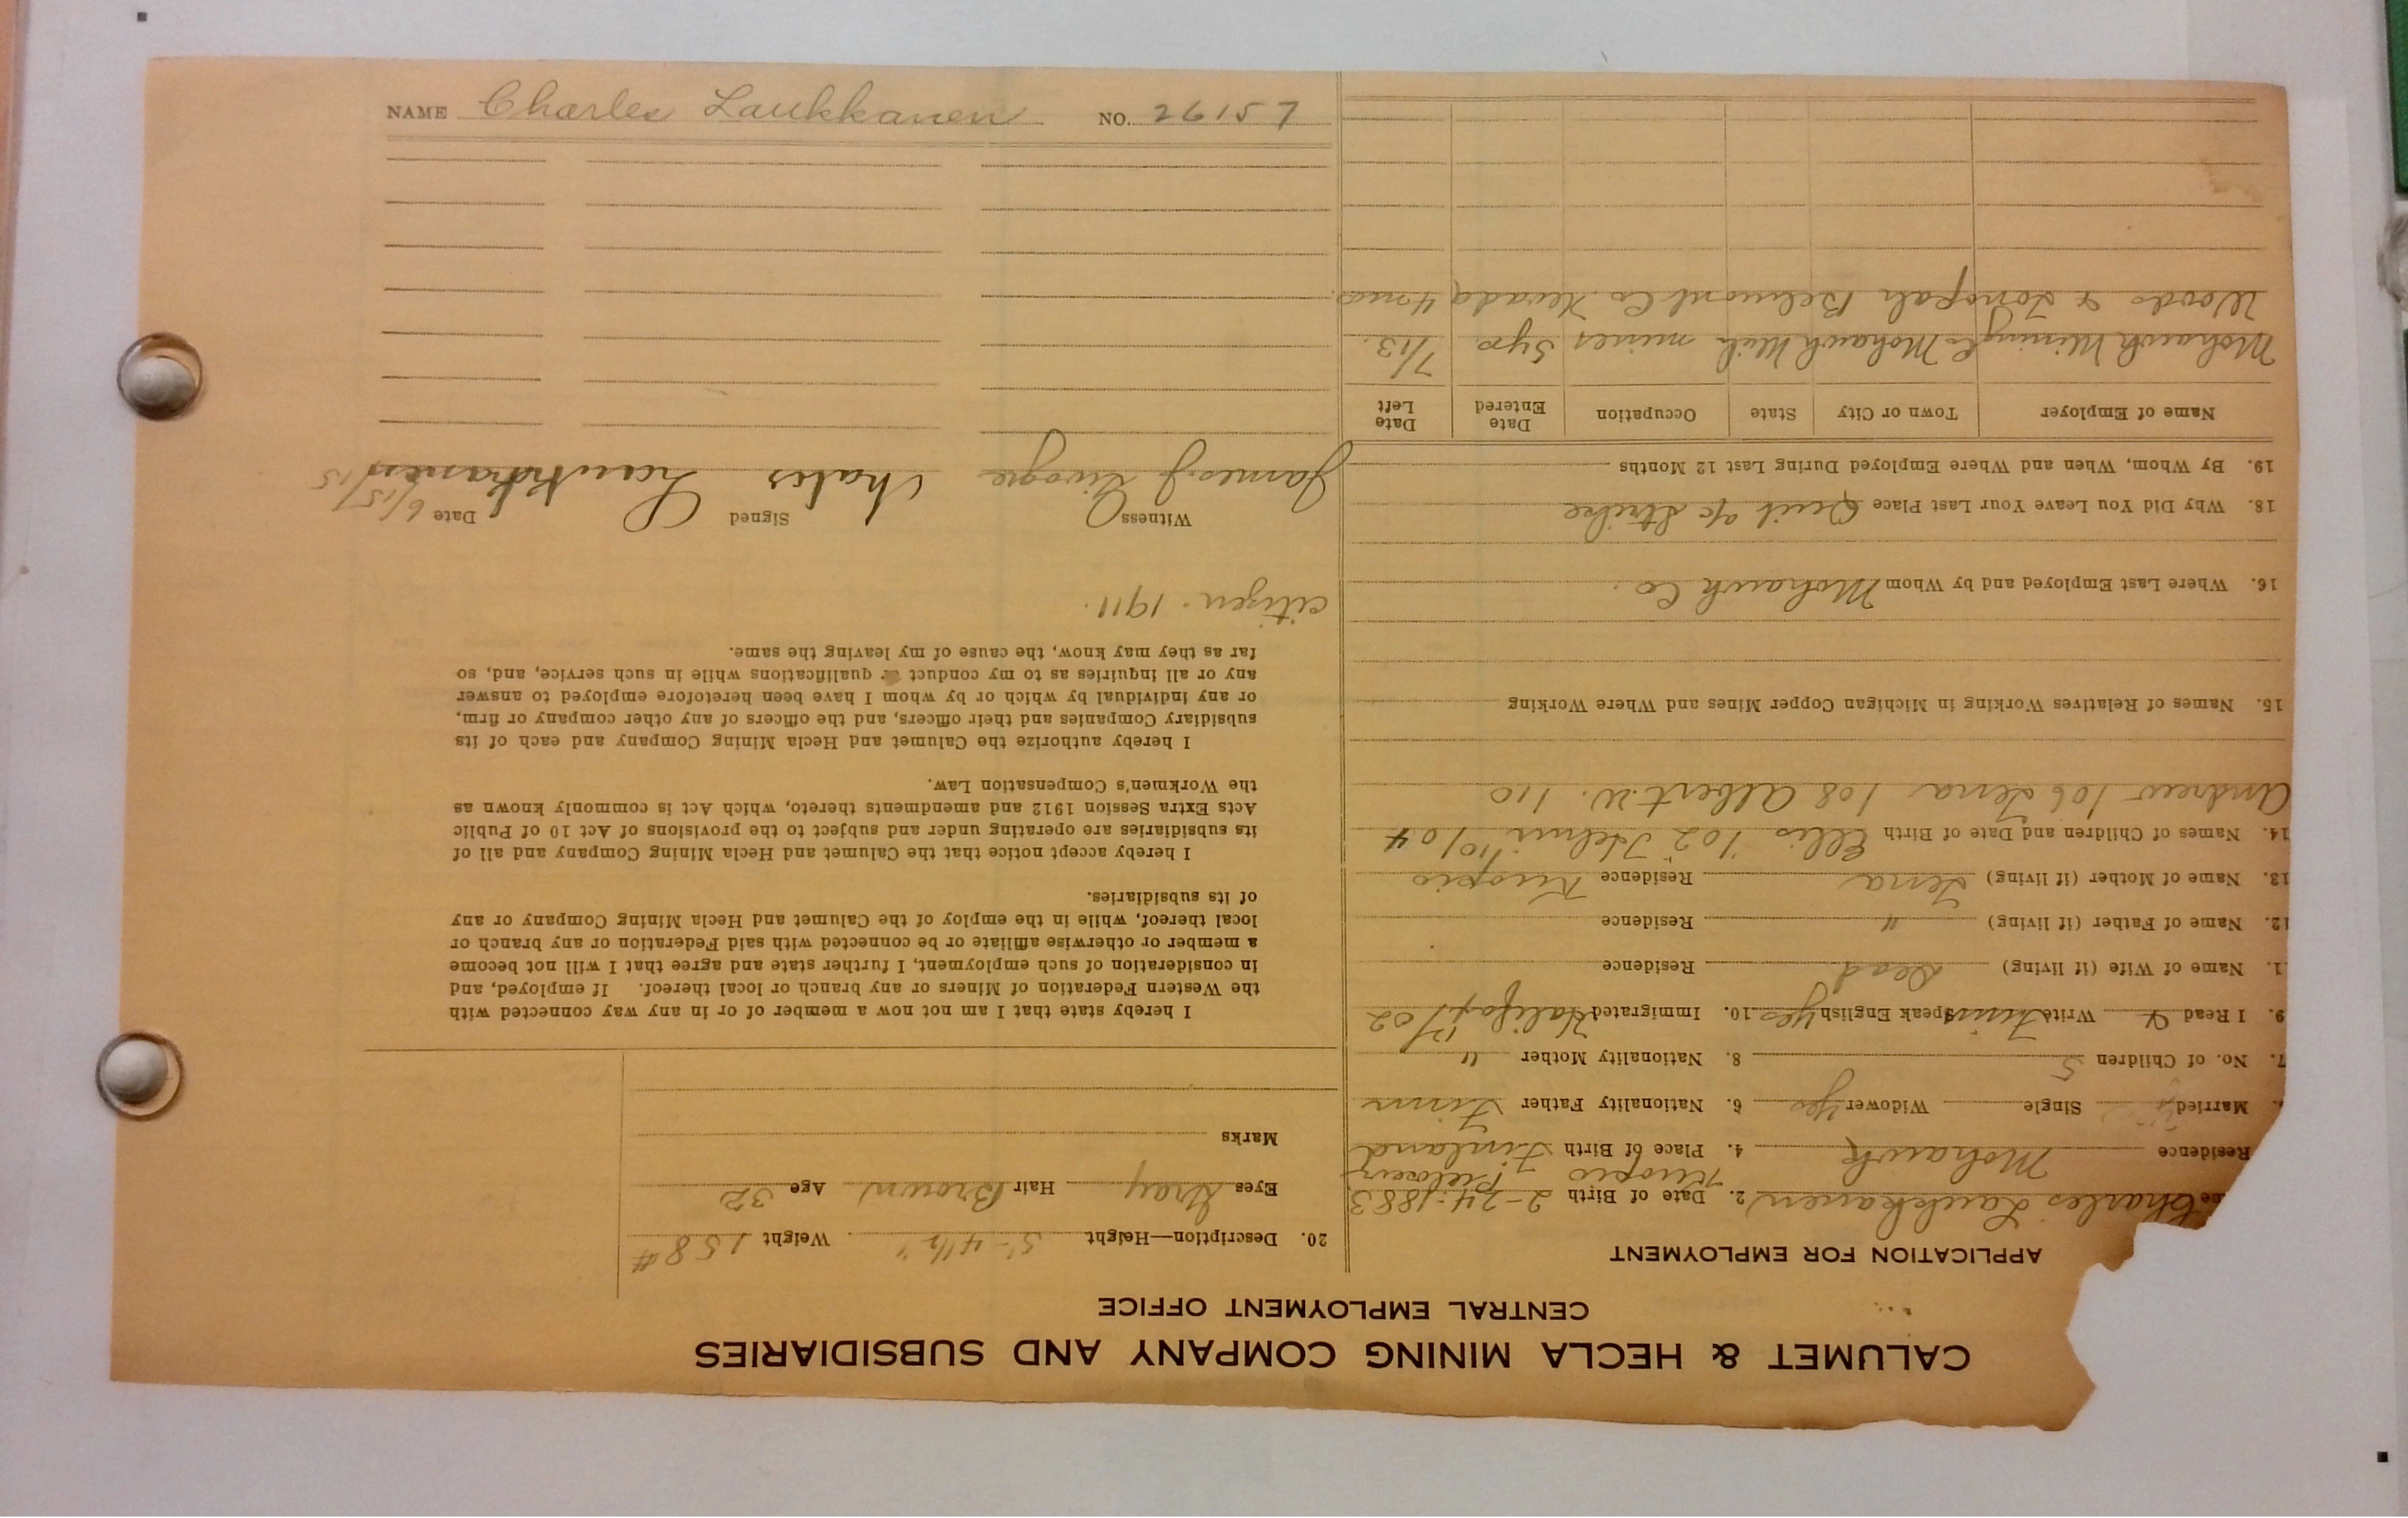 CALUMET & HECLA MINING COMPANY AND SUBSIDIARIES
CENTRAL EMPLOYMENT OFFICE
APPLICATION FOR EMPLOYMENT
Charles Laukkanen 2. Date of Birth 2-24-1883
Kuopio
Residence Mohawk 4. Place of Birth Finland
Married Single Widower yes 6. Nationality Father Finn
7. No. of Children 5 8. Nationality Mother "
9. I Read & Write Finn Speak English yes 10. Immigrated Halifax 02
1. Name of Wife (if living) Dead Residence
12. Name of Father (if living) " Residence
13. Name of Mother (if living) Lena Residence Kuopio
14. Names of Children and Date of Birth Ellis 102 10/04
Andrew 106 Lena 108 Albert W. 110
15. Names of Relatives Working in Michigan Copper Mines and Where Working
16. Where Last Employed and by Whom Mohawk Co.
18. Why Did You Leave Your Last Place Quit a/c Strike
19. By Whom, When and Where Employed During Last 12 Months
Name of Employer Town or City State Occupation Date Entered Date Left
Mohawk Mining Co Mohawk Mich mines 5 yrs. 7/13.
Woods & Tonopah Belmont Co. Nevada 4 mos.
20. Description—Height 5'-4 1/2" Weight 158#
Eyes Gray Hair Brown Age 32
Marks
I hereby state that I am not now a member of or in any way connected with
the Western Federation of Miners or any branch or local thereof. If employed, and
in consideration of such employment, I further state and agree that I will not become
a member or otherwise affiliate or be connected with said Federation or any branch or
local thereof, while in the employ of the Calumet and Hecla Mining Company or any
of its subsidiaries.
I hereby accept notice that the Calumet and Hecla Mining Company and all of
its subsidiaries are operating under and subject to the provisions of Act 10 of Public
Acts Extra Session 1912 and amendments thereto, which Act is commonly known as
the Workmen's Compensation Law.
I hereby authorize the Calumet and Hecla Mining Company and each of its
subsidiary Companies and their officers, and the officers of any other company or firm,
or any individual by which or by whom I have been heretofore employed to answer
any or all inquiries as to my conduct or qualifications while in such service, and, so
far as they may know, the cause of my leaving the same.
citizen. 1911.
Witness Signed Date 6/15/15
James J. Chales Laukkanen
NAME Charles Laukkanen NO. 26157